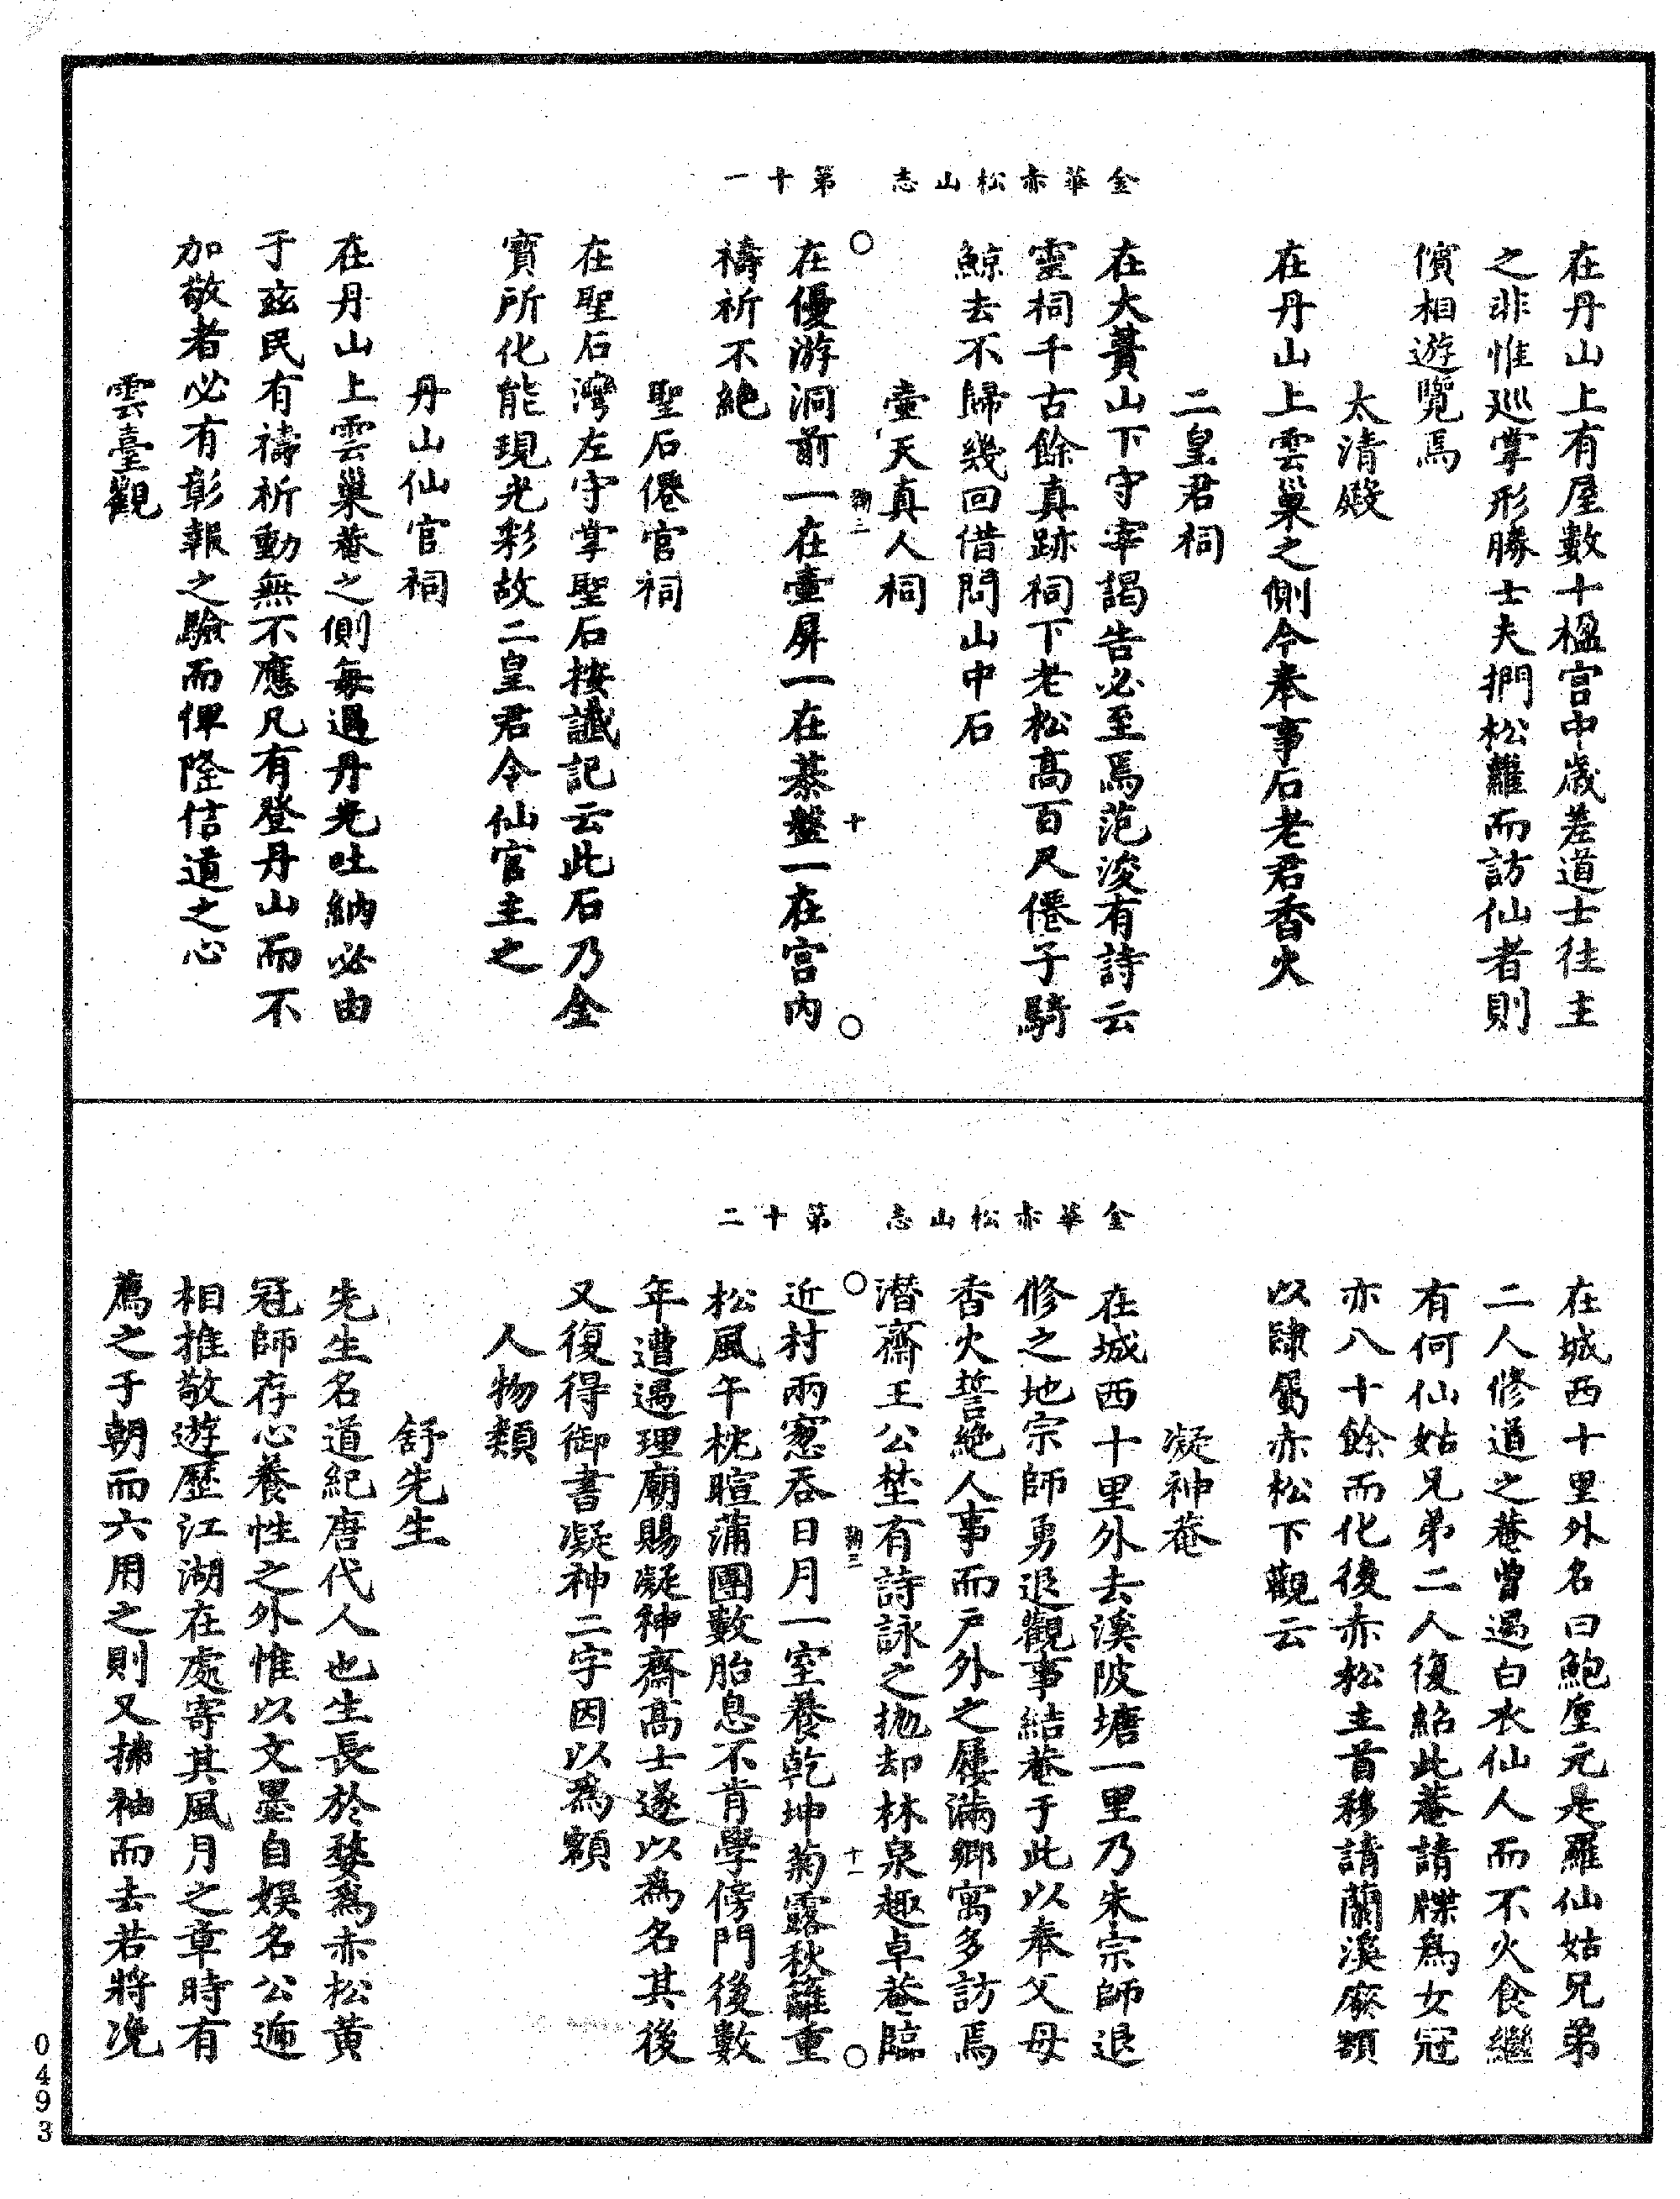 金華赤松山志　第十一
在丹山上有屋數十楹宫中歲差道士往主
之非惟巡掌形勝士夫捫松蘿而訪仙者則
儐相遊覽焉
太清殿
在丹山上雲巢之側今奉事石老君香火
二皇君祠
在大蕢山下守宰謁告必至焉范浚有詩云
靈祠千古餘真跡祠下老松高百尺僊子騎
鯨去不歸幾回借問山中石
壷天真人祠
在優游洞前一在壷屏一在棊盤一在宫内
十
禱祈不絶
聖石僊官祠
在聖石灣左守掌聖石按讖記云此石乃金
寳所化能現光彩故二皇君令仙官主之
丹山仙官祠
在丹山上雲巢菴之側每過丹光吐納必由
于兹民有禱祈動無不應凡有登丹山而不
加敬者必有彰報之驗而俾隆信道之心
雲臺觀
金華赤松山志　第十二
在城西十里外名曰鮑壟元是羅仙姑兄弟
二人修道之菴曾過白衣仙人而不火食繼
有何仙姑兄弟二人復紹此菴請牒爲女冠
亦八十餘而化後赤松主首移請蘭溪廢額
以隷屬赤松下觀云
凝神菴
在城西十里外去溪陂塘一里乃朱宗師退
修之地宗師勇退觀事結菴于此以奉父母
香火誓絶人事而户外之屨滿鄉寓多訪焉
潛齋王公埜有詩詠之抛却林泉趣卓菴臨
近村兩窓吞日月一室養乾坤菊露秋籬重
十一
松風午枕暄蒲團數胎息不肯學傍門後數
年遭遇理廟賜凝神齋高士遂以爲名其後
又復得御書凝神二字因以爲額
人物類
舒先生
先生名道紀唐代人也生長於婺爲赤松黄
冠師存心養性之外惟以文墨自娱名公迊
相推敬遊歷江湖在處寄其風月之章時有
薦之于朝而六用之則又拂袖而去若將凂
0493